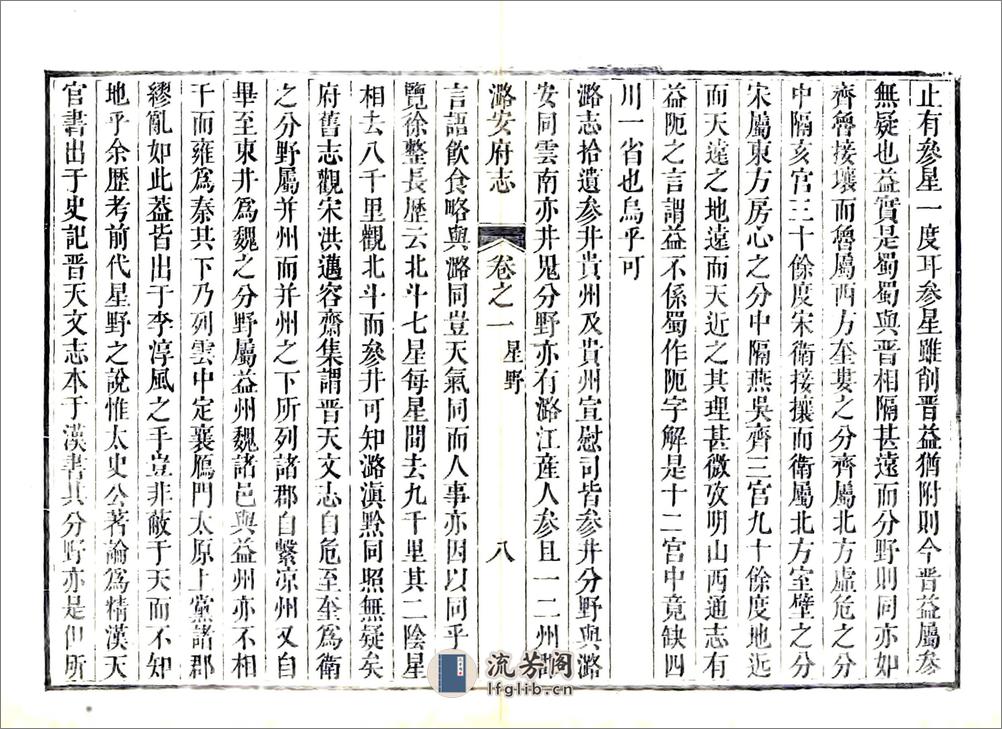 止有參星一度耳參星雖削晉益猶附則今晉益屬參
無疑也益實是蜀蜀與晉相隔甚遠而分野則同亦如
齊魯接壤而魯屬西方奎婁之分齊屬北方虛危之分
中隔亥宮三十餘度宋衛接攘而衛屬北方室壁之分
宋屬東方房心之分中隔燕吳齊三宮九十餘度地近
而天遠之地遠而天近之其理甚微攷明山西通志有
益阨之言謂益不係蜀作阨字解是十二宮中竟缺四
川一省也烏乎可
潞志拾遺參井貴州及貴州宣慰司皆參井分野與潞
安同雲南亦井鬼分野亦有潞江産人參且一二州
潞安府志
卷之一
星野
八
言語飲食略與潞同豈天氣同而人事亦因以同乎
覽徐整長歷云北斗七星每星間去九千里其二陰星
相去八千里觀北斗而參井可知潞滇黔同照無疑矣
府舊志觀宋洪邁容齋集謂晉天文志自危至奎爲衛
之分野屬并州而并州之下所列諸郡自繫涼州又自
畢至東井爲魏之分野屬益州魏諸邑與益州亦不相
干而雍爲秦其下乃列雲中定襄鴈門太原上黨諸郡
繆亂如此葢皆出于李淳風之手豈非蔽于天而不知
地乎余歷考前代星野之說惟太史公著論爲精漢天
官書出于史記晉天文志本于漢書其分野亦是但所
流芳閣
lfglib.cn